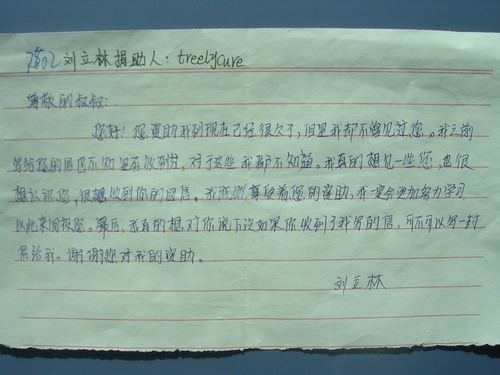 2802刘立林捐助人：treelycure
尊敬的叔叔：
您好！您资助我到现在已经很久了，但是我却不曾见过您。我之前
写给您的信也不知是否收到过，对于这些我都不知道。我真的想见一些您，也很
想认识您，很想收到你的回信。我在努享受着您的资助，我一定会更加努力学习
以此来回报您。最后，我真的想对你说下次如果你收到了我写的信，可不可以写一封
风给我。谢谢您对我的资助。
刘立林